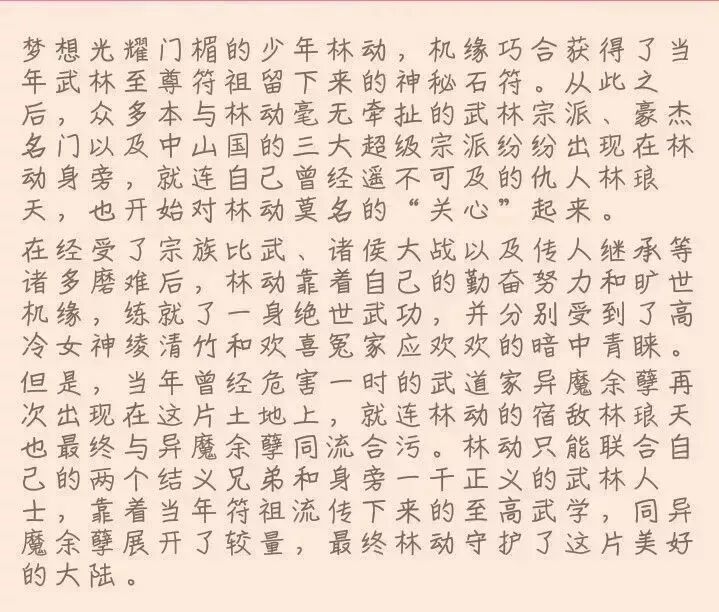 梦想光耀门楣的少年林动，机缘巧合获得了当
年武林至尊符祖留下来的神秘石符。从此之
后，众多本与林动毫无牵扯的武林宗派、豪杰
名门以及中山国的三大超级宗派纷纷出现在林
动身旁，就连自己曾经遥不可及的仇人林琅
天，也开始对林动莫名的“关心”起来。
在经受了宗族比武、诸侯大战以及传人继承等
诸多磨难后，林动靠着自己的勤奋努力和旷世
机缘，练就了一身绝世武功，并分别受到了高
冷女神绫清竹和欢喜冤家应欢欢的暗中青睐。
但是，当年曾经危害一时的武道家异魔余孽再
次出现在这片土地上，就连林动的宿敌林琅天
也最终与异魔余孽同流合污。林动只能联合自
己的两个结义兄弟和身旁一干正义的武林人
士，靠着当年符祖流传下来的至高武学，同异
魔余孽展开了较量，最终林动守护了这片美好
的大陆。